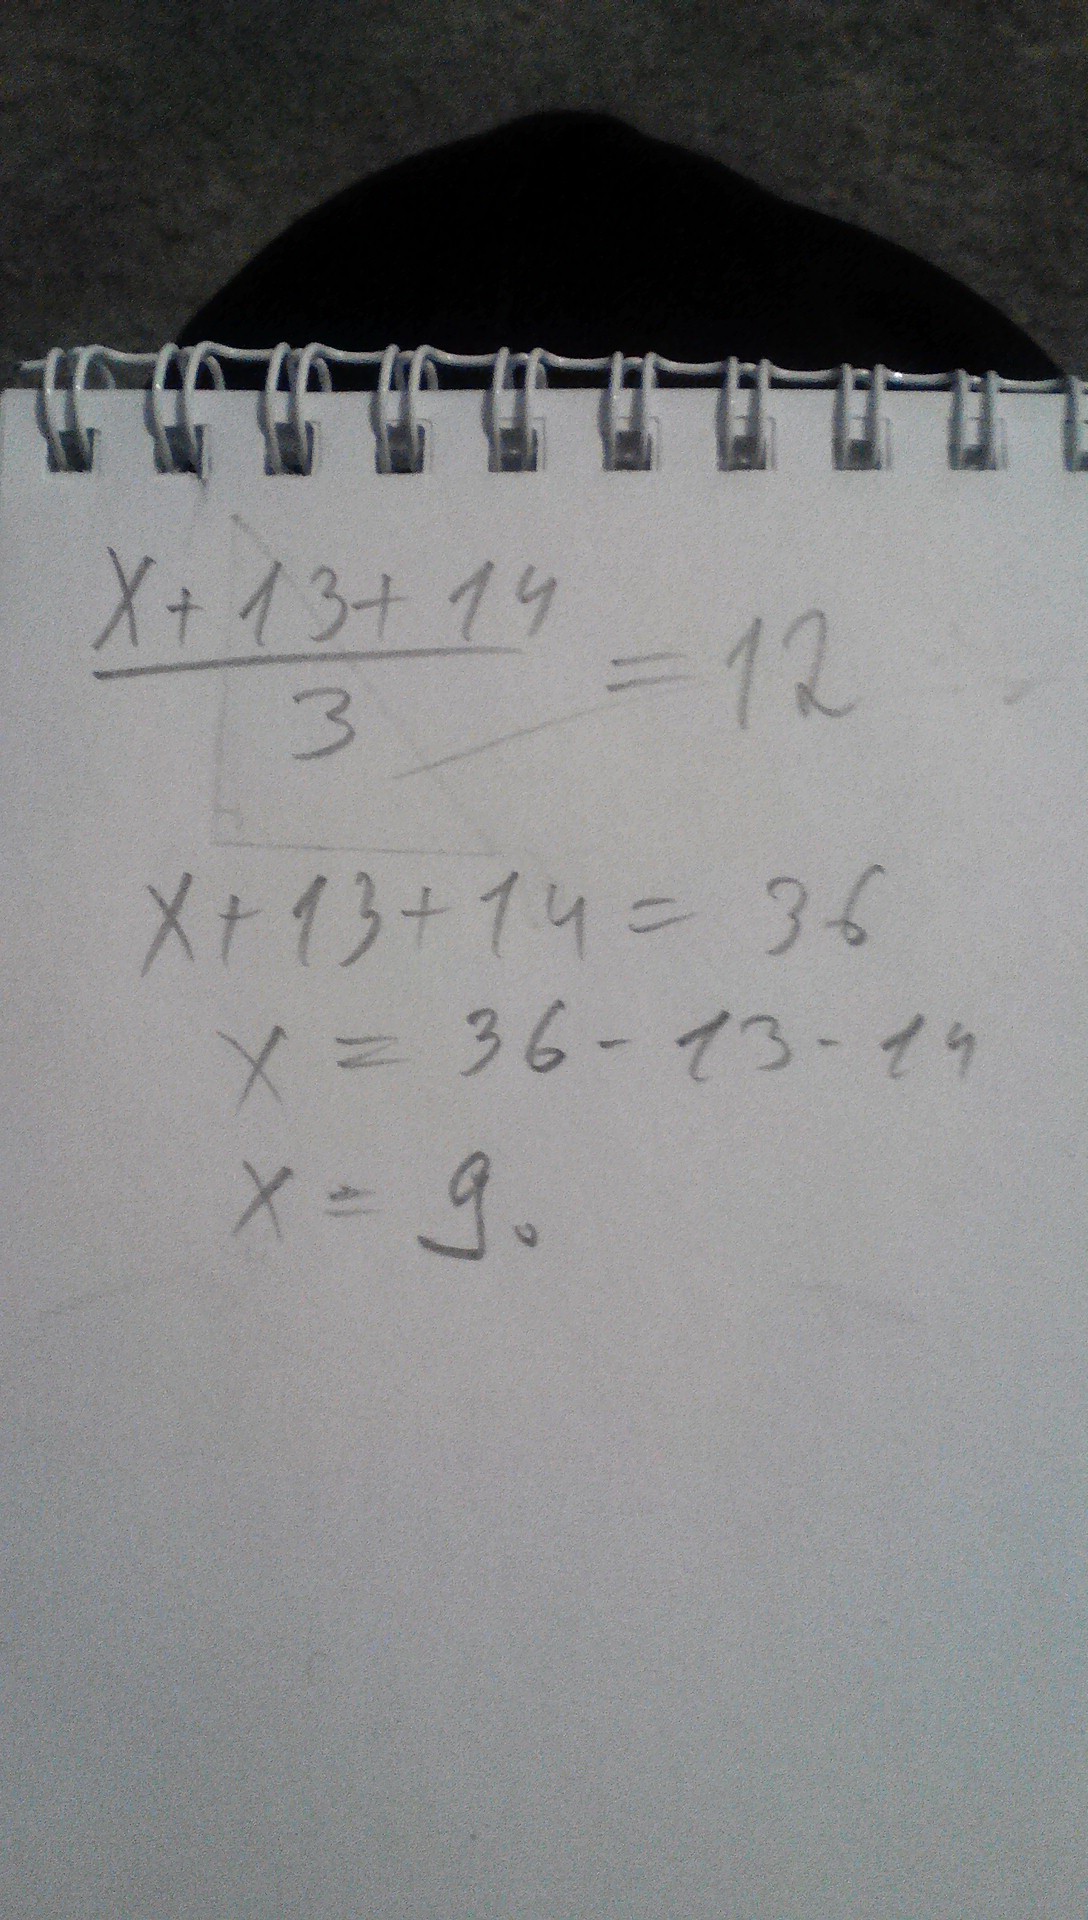 x + 13 + 14
3
= 12
x + 13 + 14 = 36
x = 36 - 13 - 14
x = 9.